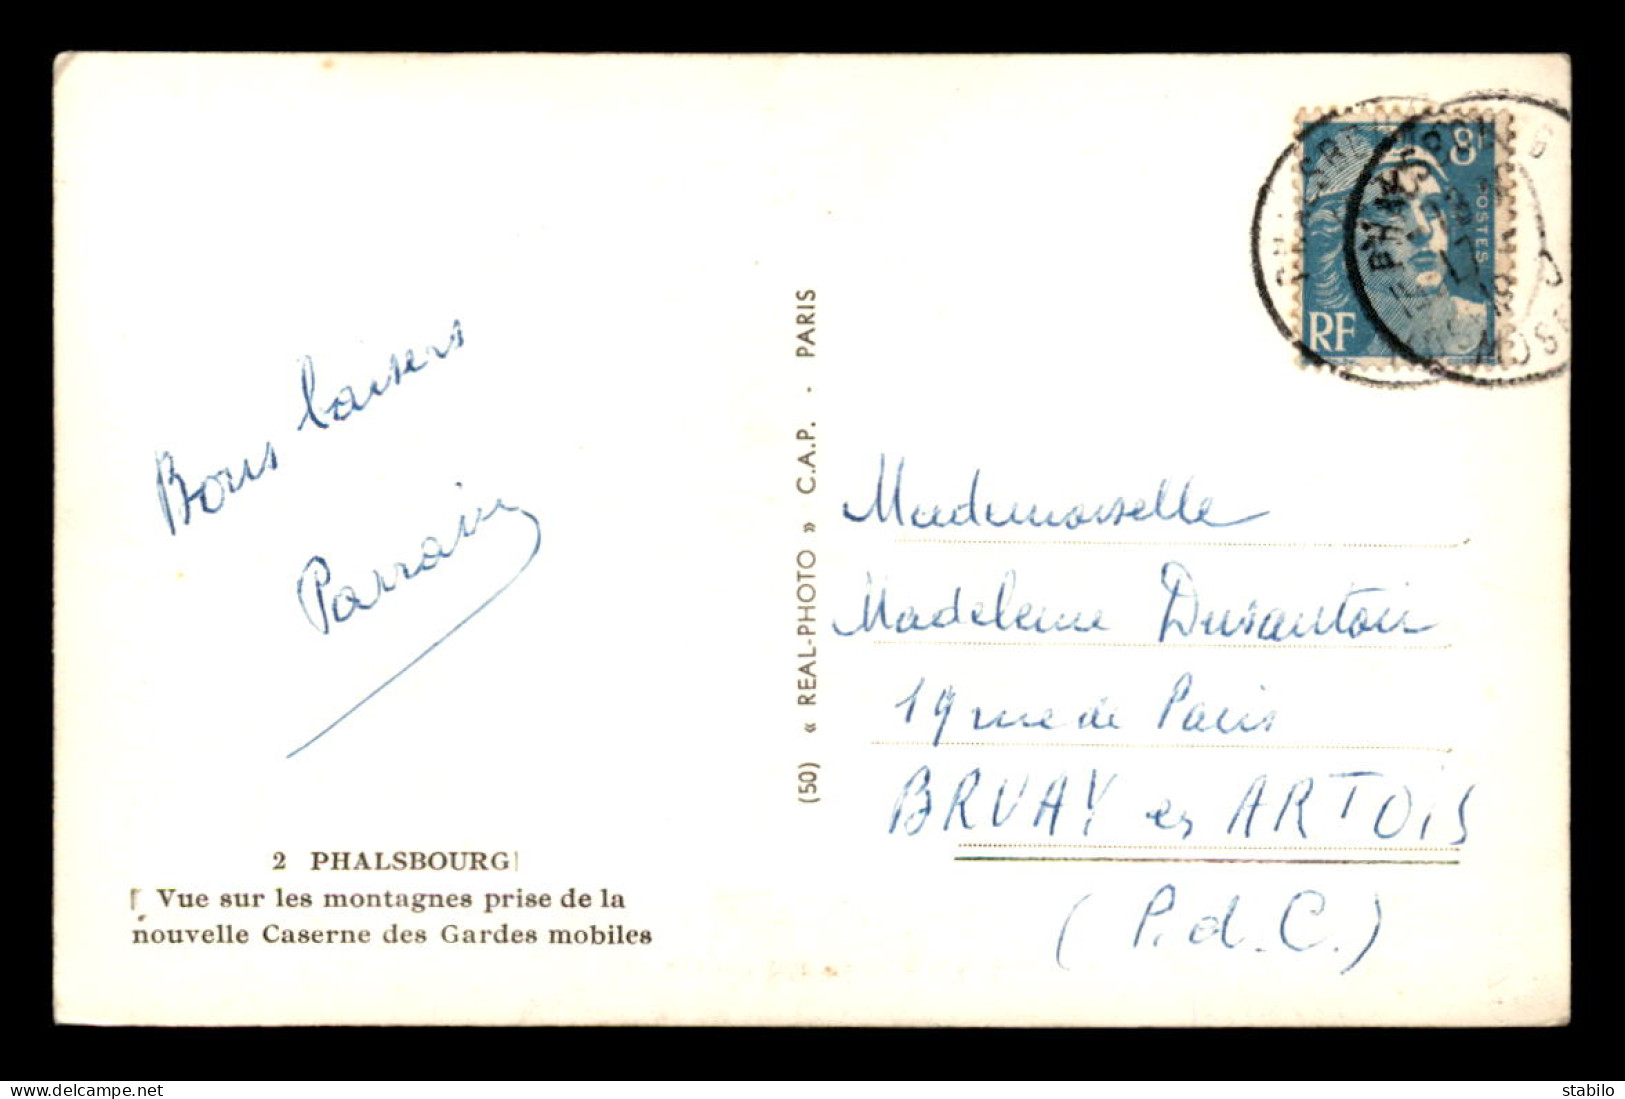 Bons baisers
Parrain
2 PHALSBOURG
Vue sur les montagnes prise de la
nouvelle Caserne des Gardes mobiles
(50) « REAL-PHOTO » C.A.P. . PARIS
8F
POSTES
RF
Mademoiselle
Madeleine
19 rue de Paris
BRUAY en ARTOIS
(P.d.C.)
delcampe.net
stabilo